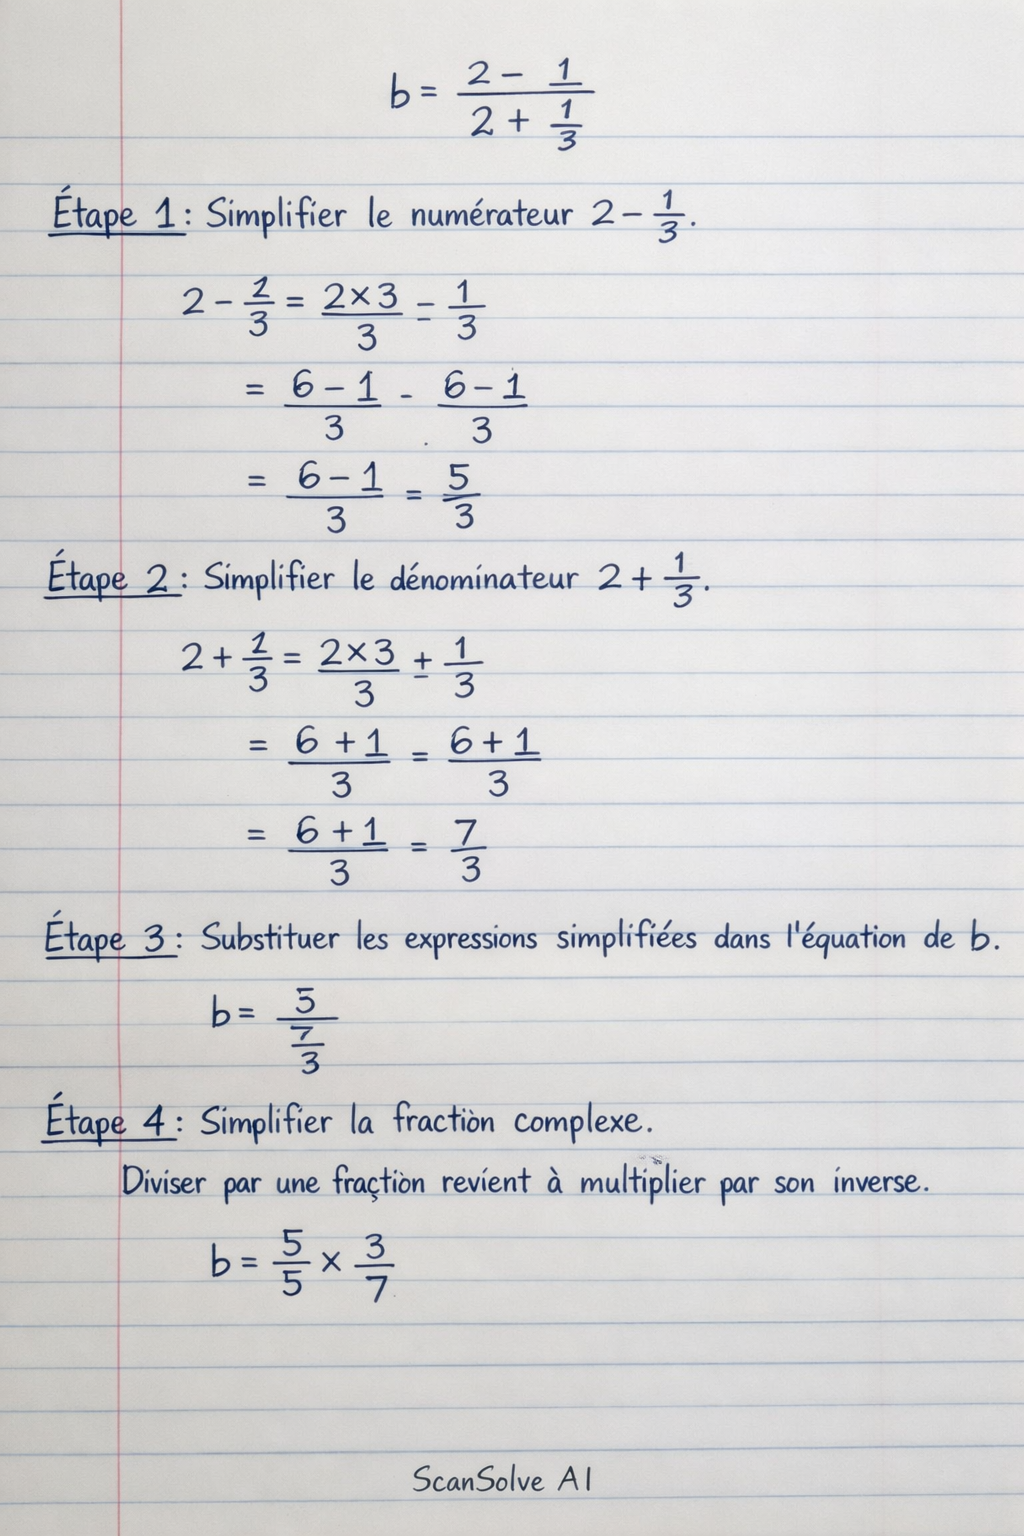 b = (2 - 1) / (2 + 1/3)
Étape 1 : Simplifier le numérateur 2 - 1/3.
2 - 1/3 = (2×3)/3 - 1/3
= (6-1)/3 - (6-1)/3
= (6-1)/3 = 5/3
Étape 2 : Simplifier le dénominateur 2 + 1/3.
2 + 1/3 = (2×3)/3 ± 1/3
= (6+1)/3 = (6+1)/3
= (6+1)/3 = 7/3
Étape 3 : Substituer les expressions simplifiées dans l'équation de b.
b = 5 / (7/3)
Étape 4 : Simplifier la fraction complexe.
Diviser par une fraction revient à multiplier par son inverse.
b = 5/5 × 3/7
ScanSolve AI